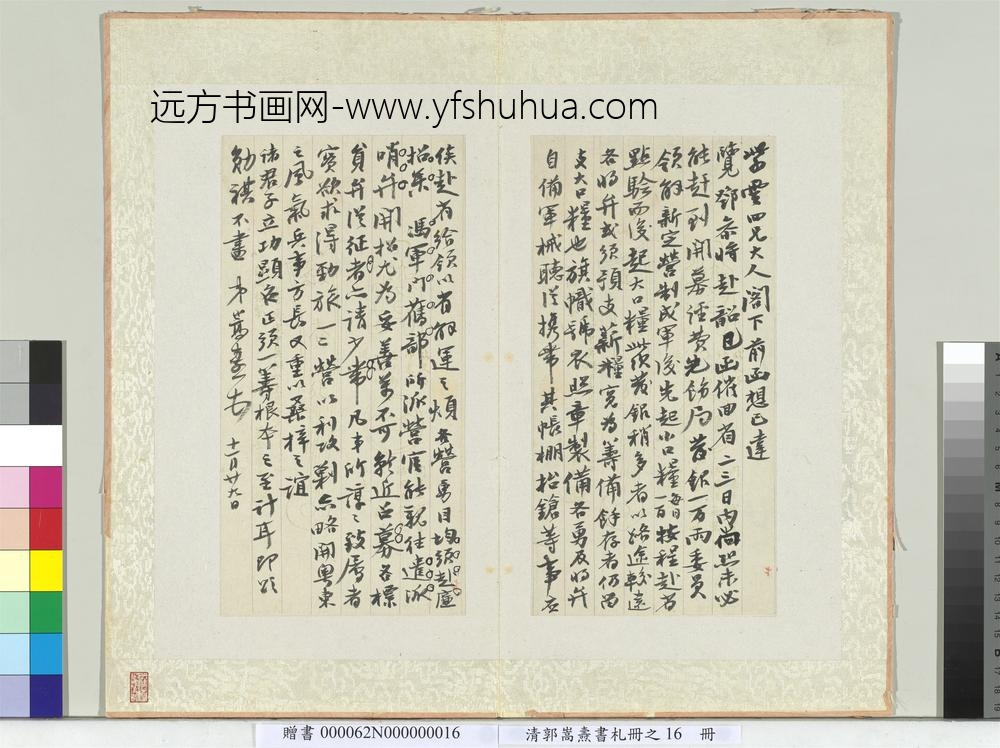 远方书画网-www.yfshuhua.com
四兄大人閣下前函想已達
覽鄧参將赴韶已函催回省二三日内尚恐未必
能赶到開募經費先飭局籌銀一万兩委員
領解新定營制成軍後先起小口糧每日一百按程赴省
點驗而後起大口糧此次發銀稍多者以路途較遠
各將弁或須預支薪糧寬為籌備餘存者仍留
支大口糧也旗幟號衣照章製備各勇及將弁
自備軍械聽從携帶其帳棚抬鎗等事應
俟赴省給領以省解運之煩各營勇目均須赴
招集馮軍門舊部所派營官能親往遣派
哨弁開招尤為妥善萬不可就近召募各標
員弁從征者亦請少帶凡事所諄諄致屬者
實欲求得勁旅一二營以利攻剿亦略開粤東
之風氣兵事方長又重以桑梓之誼
諸君子立功顯名正須一籌根本之至計耳即頌
勛祺不盡 弟嵩燾 十一月廿九日
贈書 000062N000000016
清郭嵩燾書札冊之 16 冊